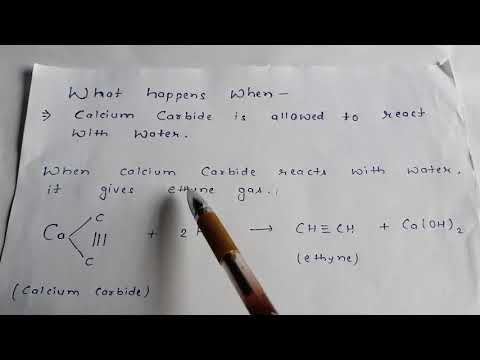 What happens when–
⇒ Calcium Carbide is allowed to react
with water.
When calcium Carbide reacts with water.
it gives ethyne gas.
Ca C ||| C + 2 → CH≡CH + Ca(OH)₂
(ethyne)
(Calcium Carbide)